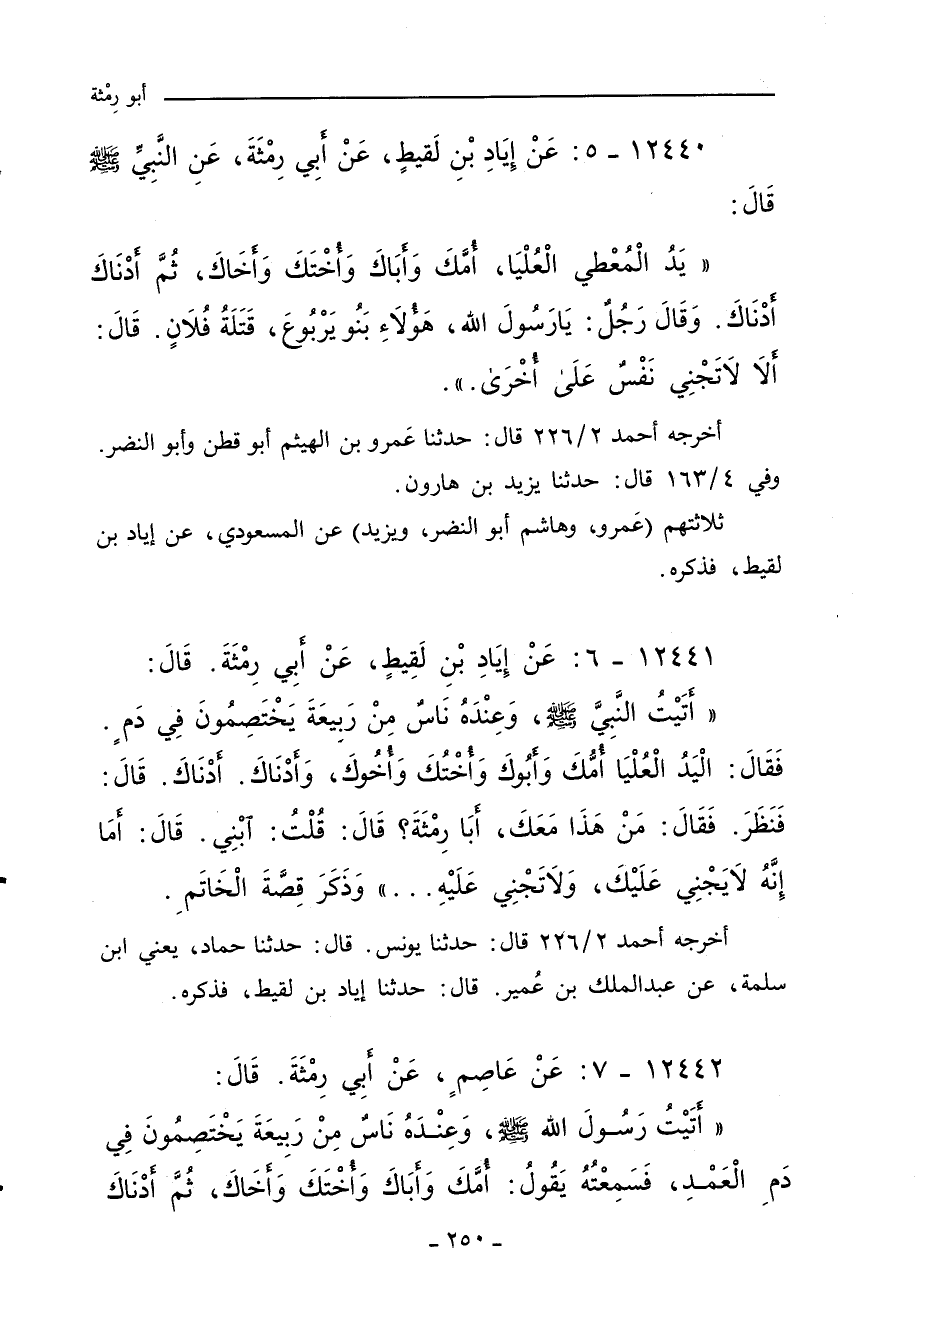 أبو رِمْثة
١٢٤٤٠ ـ ٥: عَنْ إِيَادِ بْنِ لَقيطٍ، عَنْ أَبِي رِمْثَةَ، عَنِ النَّبِيِّ ﷺ
قَالَ:
« يَدُ الْمُعْطي الْعُلْيَا، أُمَّكَ وَأَبَاكَ وَأُخْتَكَ وَأَخَاكَ، ثُمَّ أَدْنَاكَ
أَدْنَاكَ. وَقَالَ رَجُلٌ: يَارَسُولَ الله، هَؤُلَاءِ بَنُو يَرْبُوعَ، قَتَلَةُ فُلَانٍ. قَالَ:
أَلَا لَاتَجْنِي نَفْسٌ عَلَىٰ أُخْرَىٰ.».
أخرجه أحمد ٢٢٦/٢ قال: حدثنا عَمرو بن الهيثم أبو قطن وأبو النضر.
وفي ١٦٣/٤ قال: حدثنا يزيد بن هارون.
ثلاثتهم (عَمرو، وهاشم أبو النضر، ويزيد) عن المسعودي، عن إياد بن
لقيط، فذكره.
١٢٤٤١ ـ ٦: عَنْ إِيَادِ بْنِ لَقِيطٍ، عَنْ أَبِي رِمْثَةَ. قَالَ:
« أَتَيْتُ النَّبِيَّ ﷺ، وَعِنْدَهُ نَاسٌ مِنْ رَبِيعَةَ يَخْتَصِمُونَ فِي دَمٍ.
فَقَالَ: الْيَدُ الْعُلْيَا أُمُّكَ وَأَبُوكَ وَأُخْتُكَ وَأَخُوكَ، وَأَدْنَاكَ. أَدْنَاكَ. قَالَ:
فَنَظَرَ. فَقَالَ: مَنْ هَذَا مَعَكَ، أَبَا رِمْثَةَ؟ قَالَ: قُلْتُ: ٱبْنِي. قَالَ: أَمَا
إِنَّهُ لَايَجْنِي عَلَيْكَ، وَلَاتَجْنِي عَلَيْهِ...» وَذَكَرَ قِصَّةَ الْخَاتَمِ.
أخرجه أحمد ٢٢٦/٢ قال: حدثنا يونس. قال: حدثنا حماد، يعني ابن
سلمة، عن عبدالملك بن عُمير. قال: حدثنا إياد بن لقيط، فذكره.
١٢٤٤٢ ـ ٧: عَنْ عَاصِمٍ، عَنْ أَبِي رِمْثَةَ. قَالَ:
« أَتَيْتُ رَسُولَ الله ﷺ، وَعِنْدَهُ نَاسٌ مِنْ رَبِيعَةَ يَخْتَصِمُونَ فِي
دَمِ الْعَمْدِ، فَسَمِعْتُهُ يَقُولُ: أُمَّكَ وَأَبَاكَ وَأُخْتَكَ وَأَخَاكَ، ثُمَّ أَدْنَاكَ
ـ ٢٥٠ ـ